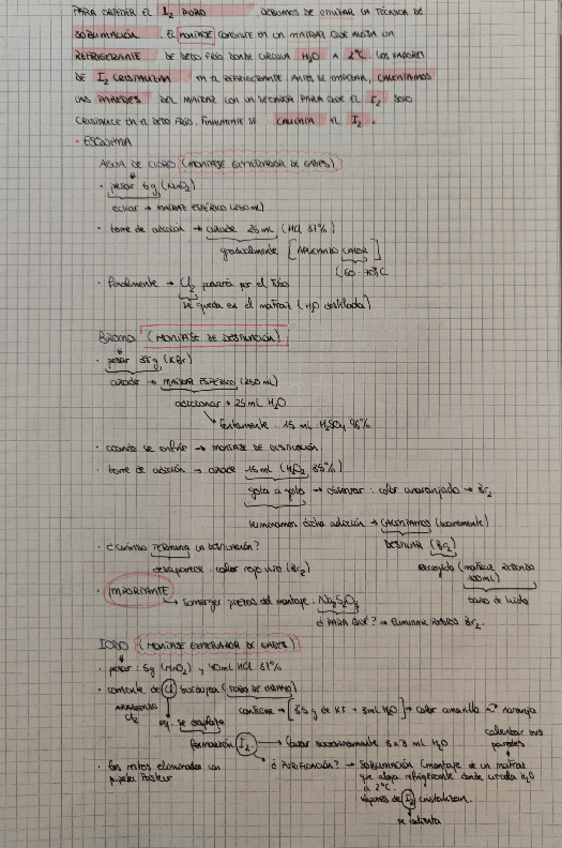 PARA OBTENER EL I₂ PURO, DEBEMOS DE UTILIZAR LA TÉCNICA DE
SUBLIMACIÓN. EL MONTAJE CONSISTE EN UN MATRAZ QUE ALOJA UN
REFRIGERANTE DE DEDO FRÍO DONDE CIRCULA H₂O A 2°C. LOS VAPORES
DE I₂ CRISTALIZAN EN EL REFRIGERANTE ANTES DE EMPEZAR, CALENTAMOS
LAS PAREDES DEL MATRAZ CON UN SECADOR PARA QUE EL I₂ SOLO
CRISTALICE EN EL DEDO FRÍO. FINALMENTE SE CALIENTA EL I₂.
· ESQUEMA
AGUA DE CLORO (MONTAJE GENERADOR DE GASES)
· pesar 5g (MnO₂)
echar → MATRAZ ESFÉRICO (250 mL)
· torre de adición → añade 25 mL (HCl 37%)
gradualmente [APLICANDO CALOR]
(60-70°C
· finalmente → Cl₂ pasará por el tubo
se queda en el matraz (H₂O destilada)
BROMO (MONTAJE DE DESTILACIÓN)
· pesar 35g (KBr)
añadir → MATRAZ ESFÉRICO (250 mL)
adicionar → 25 mL H₂O
lentamente · 15 mL H₂SO₄ 96%
· cuando se enfríe → MONTAJE DE DESTILACIÓN
· torre de adición → añade 15 mL (H₂O₂ 35%)
gota a gota → observar: color anaranjado → Br₂
terminamos dicha adición → CALENTAMOS (suavemente)
· ¿Cuándo TERMINA LA DESTILACIÓN? DESTILA (Br₂)
desaparece color rojo uso (Br₂) Recogido (matraz redondo
100 mL)
· IMPORTANTE baño de hielo
Sumerger piezas del montaje · Na₂S₂O₃
¿PARA QUÉ? → Eliminar restos Br₂.
IODO (MONTAJE GENERADOR DE GASES)
· pesar: 5g (MnO₂) y 40 mL HCl 37%
· corriente de Cl burbujea (TUBO DE ENSAYO)
AÑADIENDO Cl₂ contiene → [3.5 g de KI + 3 mL H₂O] → color amarillo naranja
eq. se desplaza calentar sus paredes
formación I₂ → lavar sucesivamente 3 x 3 mL H₂O
· los restos eliminados con ¿PURIFICACIÓN? → SUBLIMACIÓN (montaje de un matraz
pipeta Pasteur que aloja refrigerante donde circula H₂O
a 2°C.
vapores de I₂ cristalizan.
se calienta